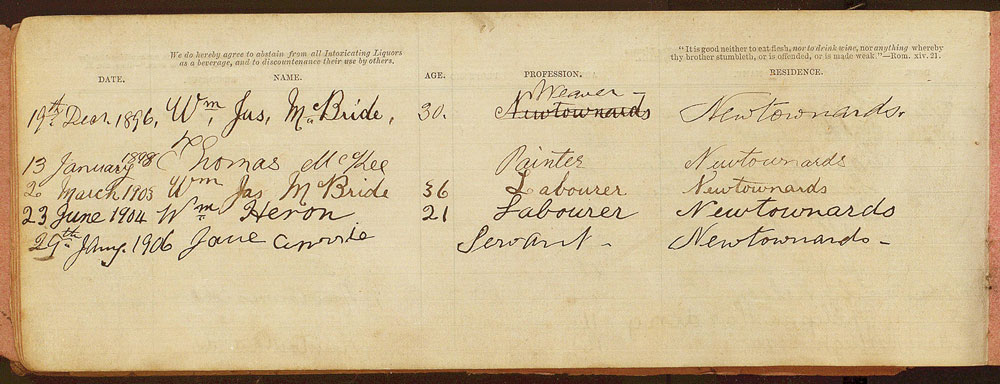 We do hereby agree to abstain from all Intoxicating Liquors
as a beverage, and to discountenance their use by others.
"It is good neither to eat flesh, nor to drink wine, nor anything whereby
thy brother stumbleth, or is offended, or is made weak."—Rom. xiv. 21.
DATE. NAME. AGE. PROFESSION. RESIDENCE.
Weaver -
19th Decr. 1896, Wm, Jas, McBride, 30. Newtownards Newtownards.
13 January 1898 Thomas McKee Painter Newtownards
2 March 1903 Wm Jas McBride 36 Labourer Newtownards
23 June 1904 Wm. Heron 21 Labourer Newtownards
29th Jany. 1906 Jane Servant - Newtownards -